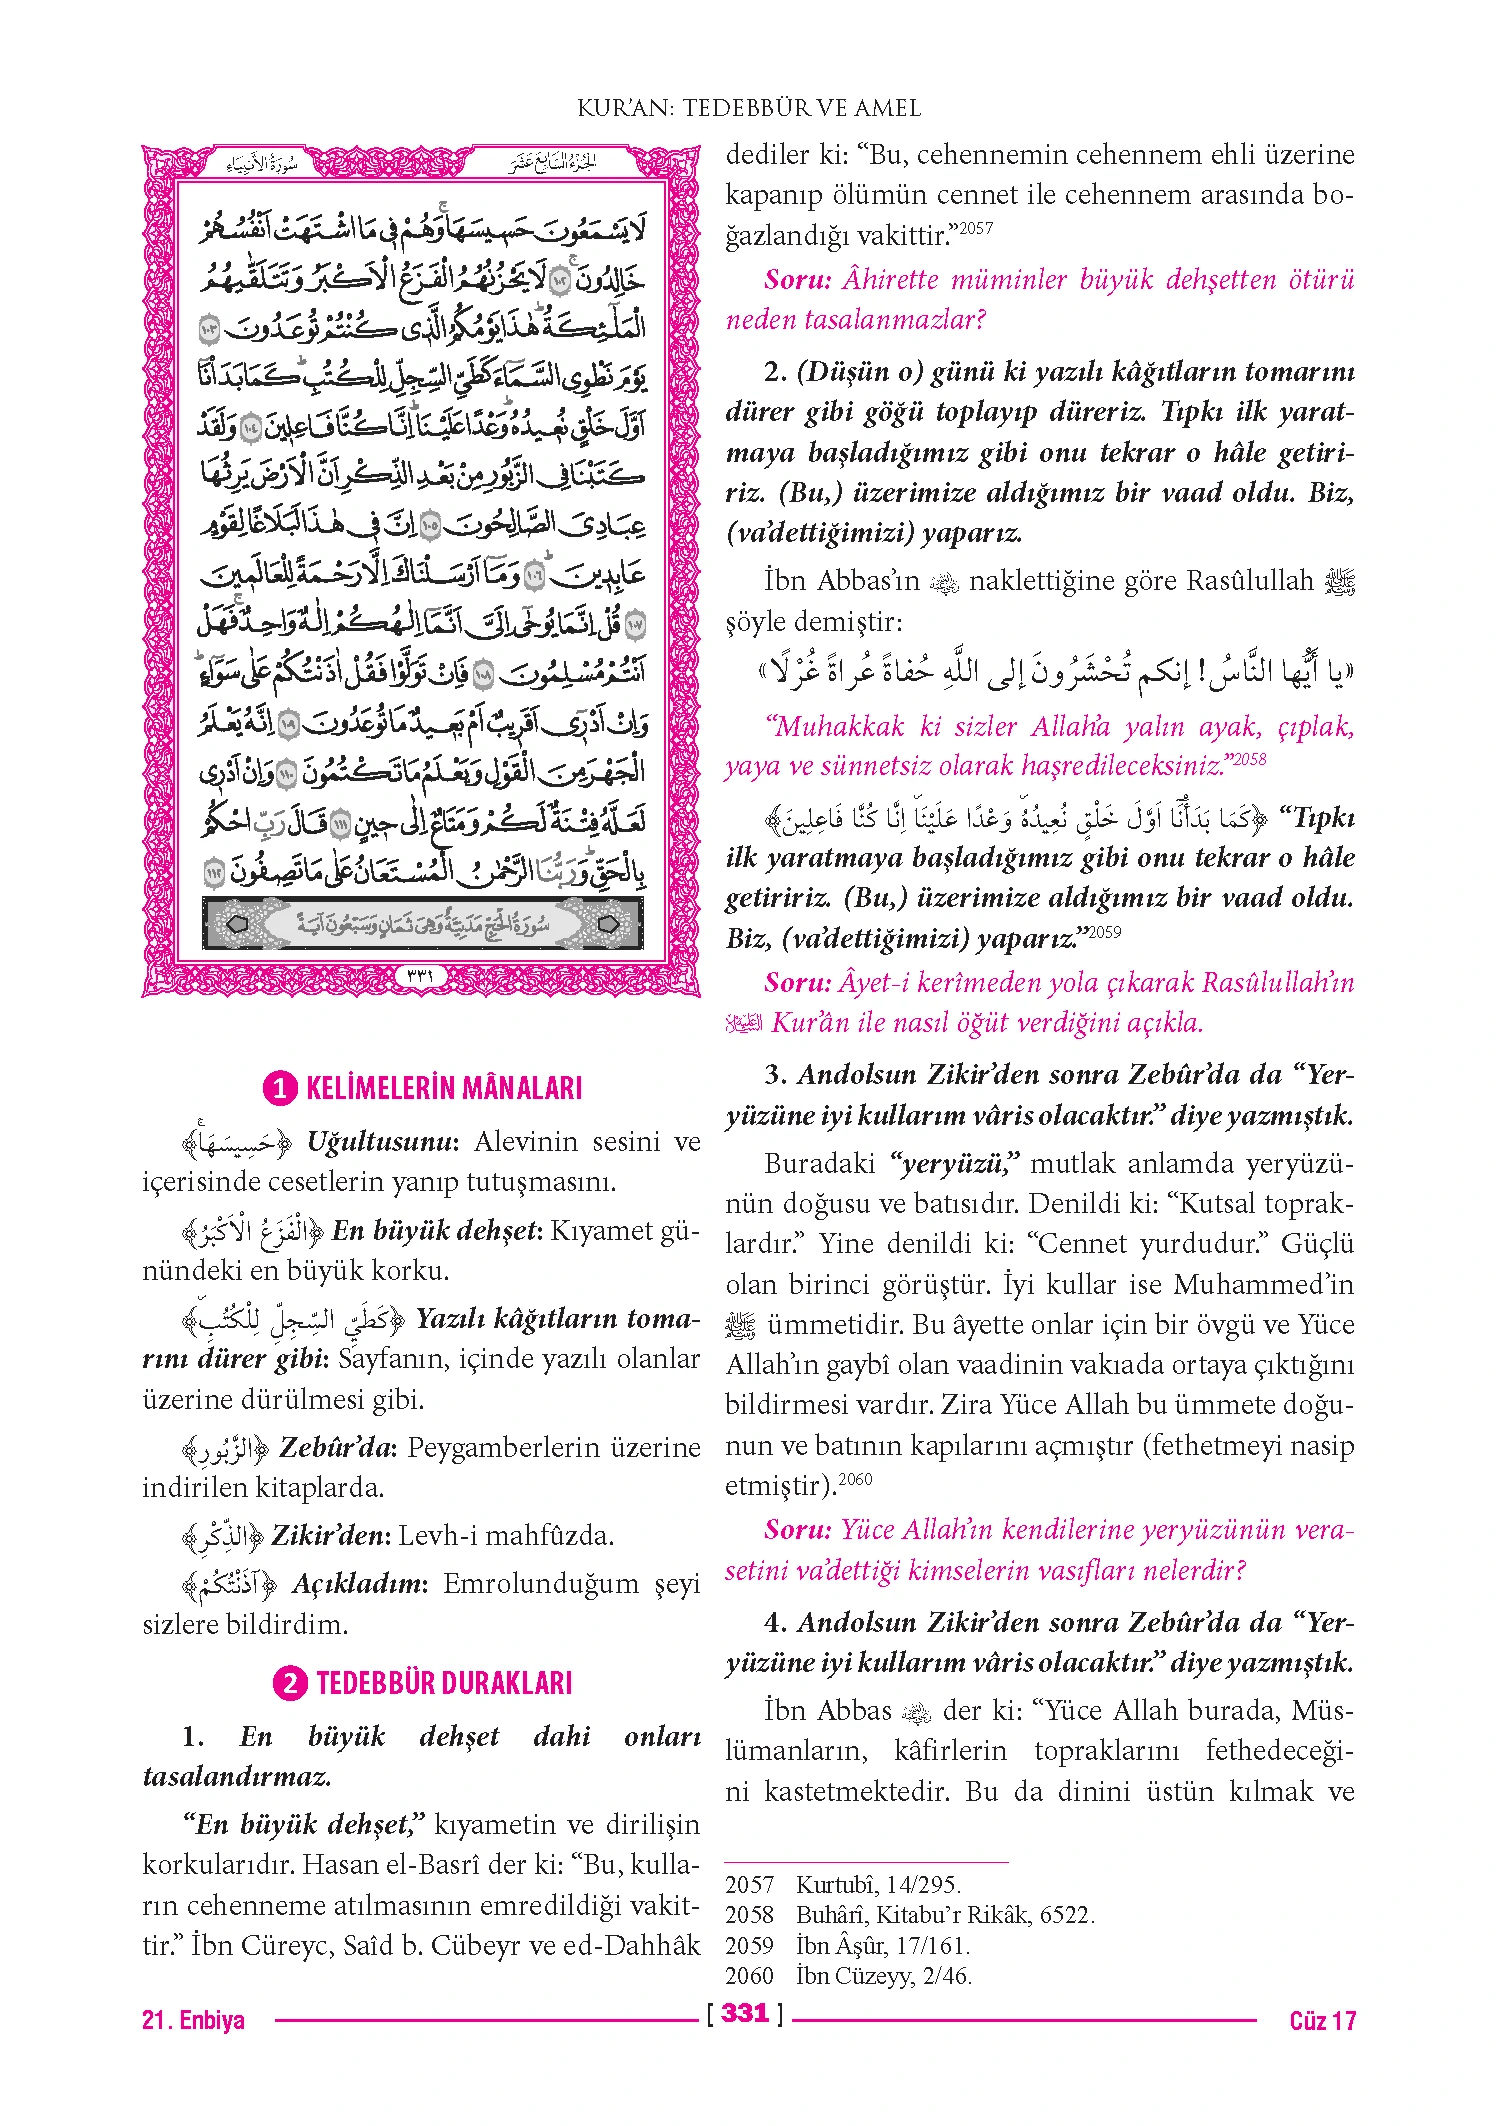 KUR’AN: TEDEBBÜR VE AMEL
سُورَةُ الْاَنْبِيَاءِ
اَلْجُزْءُ السَّابِعَ عَشَرَ
لَا يَسْمَعُونَ حَسِيسَهَاۚ وَهُمْ فِي مَا اشْتَهَتْ اَنْفُسُهُمْ
خَالِدُونَۚ ﴿١٠٢﴾ لَا يَحْزُنُهُمُ الْفَزَعُ الْاَكْبَرُ وَتَتَلَقّٰيهُمُ
الْمَلٰٓئِكَةُۜ هٰذَا يَوْمُكُمُ الَّذِي كُنْتُمْ تُوعَدُونَ ﴿١٠٣﴾
يَوْمَ نَطْوِي السَّمَٓاءَ كَطَيِّ السِّجِلِّ لِلْكُتُبِۜ كَمَا بَدَأْنَٓا
اَوَّلَ خَلْقٍ نُعِيدُهُۜ وَعْدًا عَلَيْنَاۜ اِنَّا كُنَّا فَاعِلِينَ ﴿١٠٤﴾ وَلَقَدْ
كَتَبْنَا فِي الزَّبُورِ مِنْ بَعْدِ الذِّكْرِ اَنَّ الْاَرْضَ يَرِثُهَا
عِبَادِيَ الصَّالِحُونَ ﴿١٠٥﴾ اِنَّ فِي هٰذَا لَبَلَاغًا لِقَوْمٍ
عَابِدِينَۜ ﴿١٠٦﴾ وَمَٓا اَرْسَلْنَاكَ اِلَّا رَحْمَةً لِلْعَالَمِينَ
﴿١٠٧﴾ قُلْ اِنَّمَا يُوحٰٓى اِلَيَّ اَنَّمَٓا اِلٰهُكُمْ اِلٰهٌ وَاحِدٌۚ فَهَلْ
اَنْتُمْ مُسْلِمُونَ ﴿١٠٨﴾ فَاِنْ تَوَلَّوْا فَقُلْ اٰذَنْتُكُمْ عَلٰى سَوَٓاءٍۜ
وَاِنْ اَدْرِٓي اَقَرِيبٌ اَمْ بَعِيدٌ مَا تُوعَدُونَ ﴿١٠٩﴾ اِنَّهُ يَعْلَمُ
الْجَهْرَ مِنَ الْقَوْلِ وَيَعْلَمُ مَا تَكْتُمُونَ ﴿١١٠﴾ وَاِنْ اَدْرِي
لَعَلَّهُ فِتْنَةٌ لَكُمْ وَمَتَاعٌ اِلٰى حِينٍ ﴿١١١﴾ قَالَ رَبِّ احْكُمْ
بِالْحَقِّۜ وَرَبُّنَا الرَّحْمٰنُ الْمُسْتَعَانُ عَلٰى مَا تَصِفُونَ ﴿١١٢﴾
سُورَةُ الْحَجِّ مَدَنِيَّةٌ وَهِيَ ثَمَانٍ وَسَبْعُونَ اٰيَةً
٣٣١
1 KELİMELERİN MÂNALARI
﴿حَسِيسَهَاۚ﴾ Uğultusunu: Alevinin sesini ve
içerisinde cesetlerin yanıp tutuşmasını.
﴿الْفَزَعُ الْاَكْبَرُ﴾ En büyük dehşet: Kıyamet gü-
nündeki en büyük korku.
﴿كَطَيِّ السِّجِلِّ لِلْكُتُبِۜ﴾ Yazılı kâğıtların toma-
rını dürer gibi: Sayfanın, içinde yazılı olanlar
üzerine dürülmesi gibi.
﴿الزَّبُورِ﴾ Zebûr’da: Peygamberlerin üzerine
indirilen kitaplarda.
﴿الذِّكْرِ﴾ Zikir’den: Levh-i mahfûzda.
﴿آذَنْتُكُمْ﴾ Açıkladım: Emrolunduğum şeyi
sizlere bildirdim.
2 TEDEBBÜR DURAKLARI
1. En büyük dehşet dahi onları
tasalandırmaz.
“En büyük dehşet,” kıyametin ve dirilişin
korkularıdır. Hasan el-Basrî der ki: “Bu, kulla-
rın cehenneme atılmasının emredildiği vakit-
tir.” İbn Cüreyc, Saîd b. Cübeyr ve ed-Dahhâk
dediler ki: “Bu, cehennemin cehennem ehli üzerine
kapanıp ölümün cennet ile cehennem arasında bo-
ğazlandığı vakittir.”2057
Soru: Âhirette müminler büyük dehşetten ötürü
neden tasalanmazlar?
2. (Düşün o) günü ki yazılı kâğıtların tomarını
dürer gibi göğü toplayıp düreriz. Tıpkı ilk yarat-
maya başladığımız gibi onu tekrar o hâle getiri-
riz. (Bu,) üzerimize aldığımız bir vaad oldu. Biz,
(va’dettiğimizi) yaparız.
İbn Abbas’ın naklettiğine göre Rasûlullah ﷺ
şöyle demiştir:
«يا أَيُّها النَّاسُ! إنكم تُحْشَرُونَ إلى اللَّهِ حُفاةً عُراةً غُرْلًا»
“Muhakkak ki sizler Allah’a yalın ayak, çıplak,
yaya ve sünnetsiz olarak haşredileceksiniz.”2058
﴿كَمَا بَدَأْنَٓا اَوَّلَ خَلْقٍ نُعِيدُهُۜ وَعْدًا عَلَيْنَاۜ اِنَّا كُنَّا فَاعِلِينَ﴾ “Tıpkı
ilk yaratmaya başladığımız gibi onu tekrar o hâle
getiririz. (Bu,) üzerimize aldığımız bir vaad oldu.
Biz, (va’dettiğimizi) yaparız.”2059
Soru: Âyet-i kerîmeden yola çıkarak Rasûlullah’ın
Kur’ân ile nasıl öğüt verdiğini açıkla.
3. Andolsun Zikir’den sonra Zebûr’da da “Yer-
yüzüne iyi kullarım vâris olacaktır.” diye yazmıştık.
Buradaki “yeryüzü,” mutlak anlamda yeryüzü-
nün doğusu ve batısıdır. Denildi ki: “Kutsal toprak-
lardır.” Yine denildi ki: “Cennet yurdudur.” Güçlü
olan birinci görüştür. İyi kullar ise Muhammed’in
ﷺ ümmetidir. Bu âyette onlar için bir övgü ve Yüce
Allah’ın gaybî olan vaadinin vakıada ortaya çıktığını
bildirmesi vardır. Zira Yüce Allah bu ümmete doğu-
nun ve batının kapılarını açmıştır (fethetmeyi nasip
etmiştir).2060
Soru: Yüce Allah’ın kendilerine yeryüzünün vera-
setini va’dettiği kimselerin vasıfları nelerdir?
4. Andolsun Zikir’den sonra Zebûr’da da “Yer-
yüzüne iyi kullarım vâris olacaktır.” diye yazmıştık.
İbn Abbas der ki: “Yüce Allah burada, Müs-
lümanların, kâfirlerin topraklarını fethedeceği-
ni kastetmektedir. Bu da dinini üstün kılmak ve
2057 Kurtubî, 14/295.
2058 Buhârî, Kitabu’r Rikâk, 6522.
2059 İbn Âşûr, 17/161.
2060 İbn Cüzeyy, 2/46.
21. Enbiya
[ 331 ]
Cüz 17